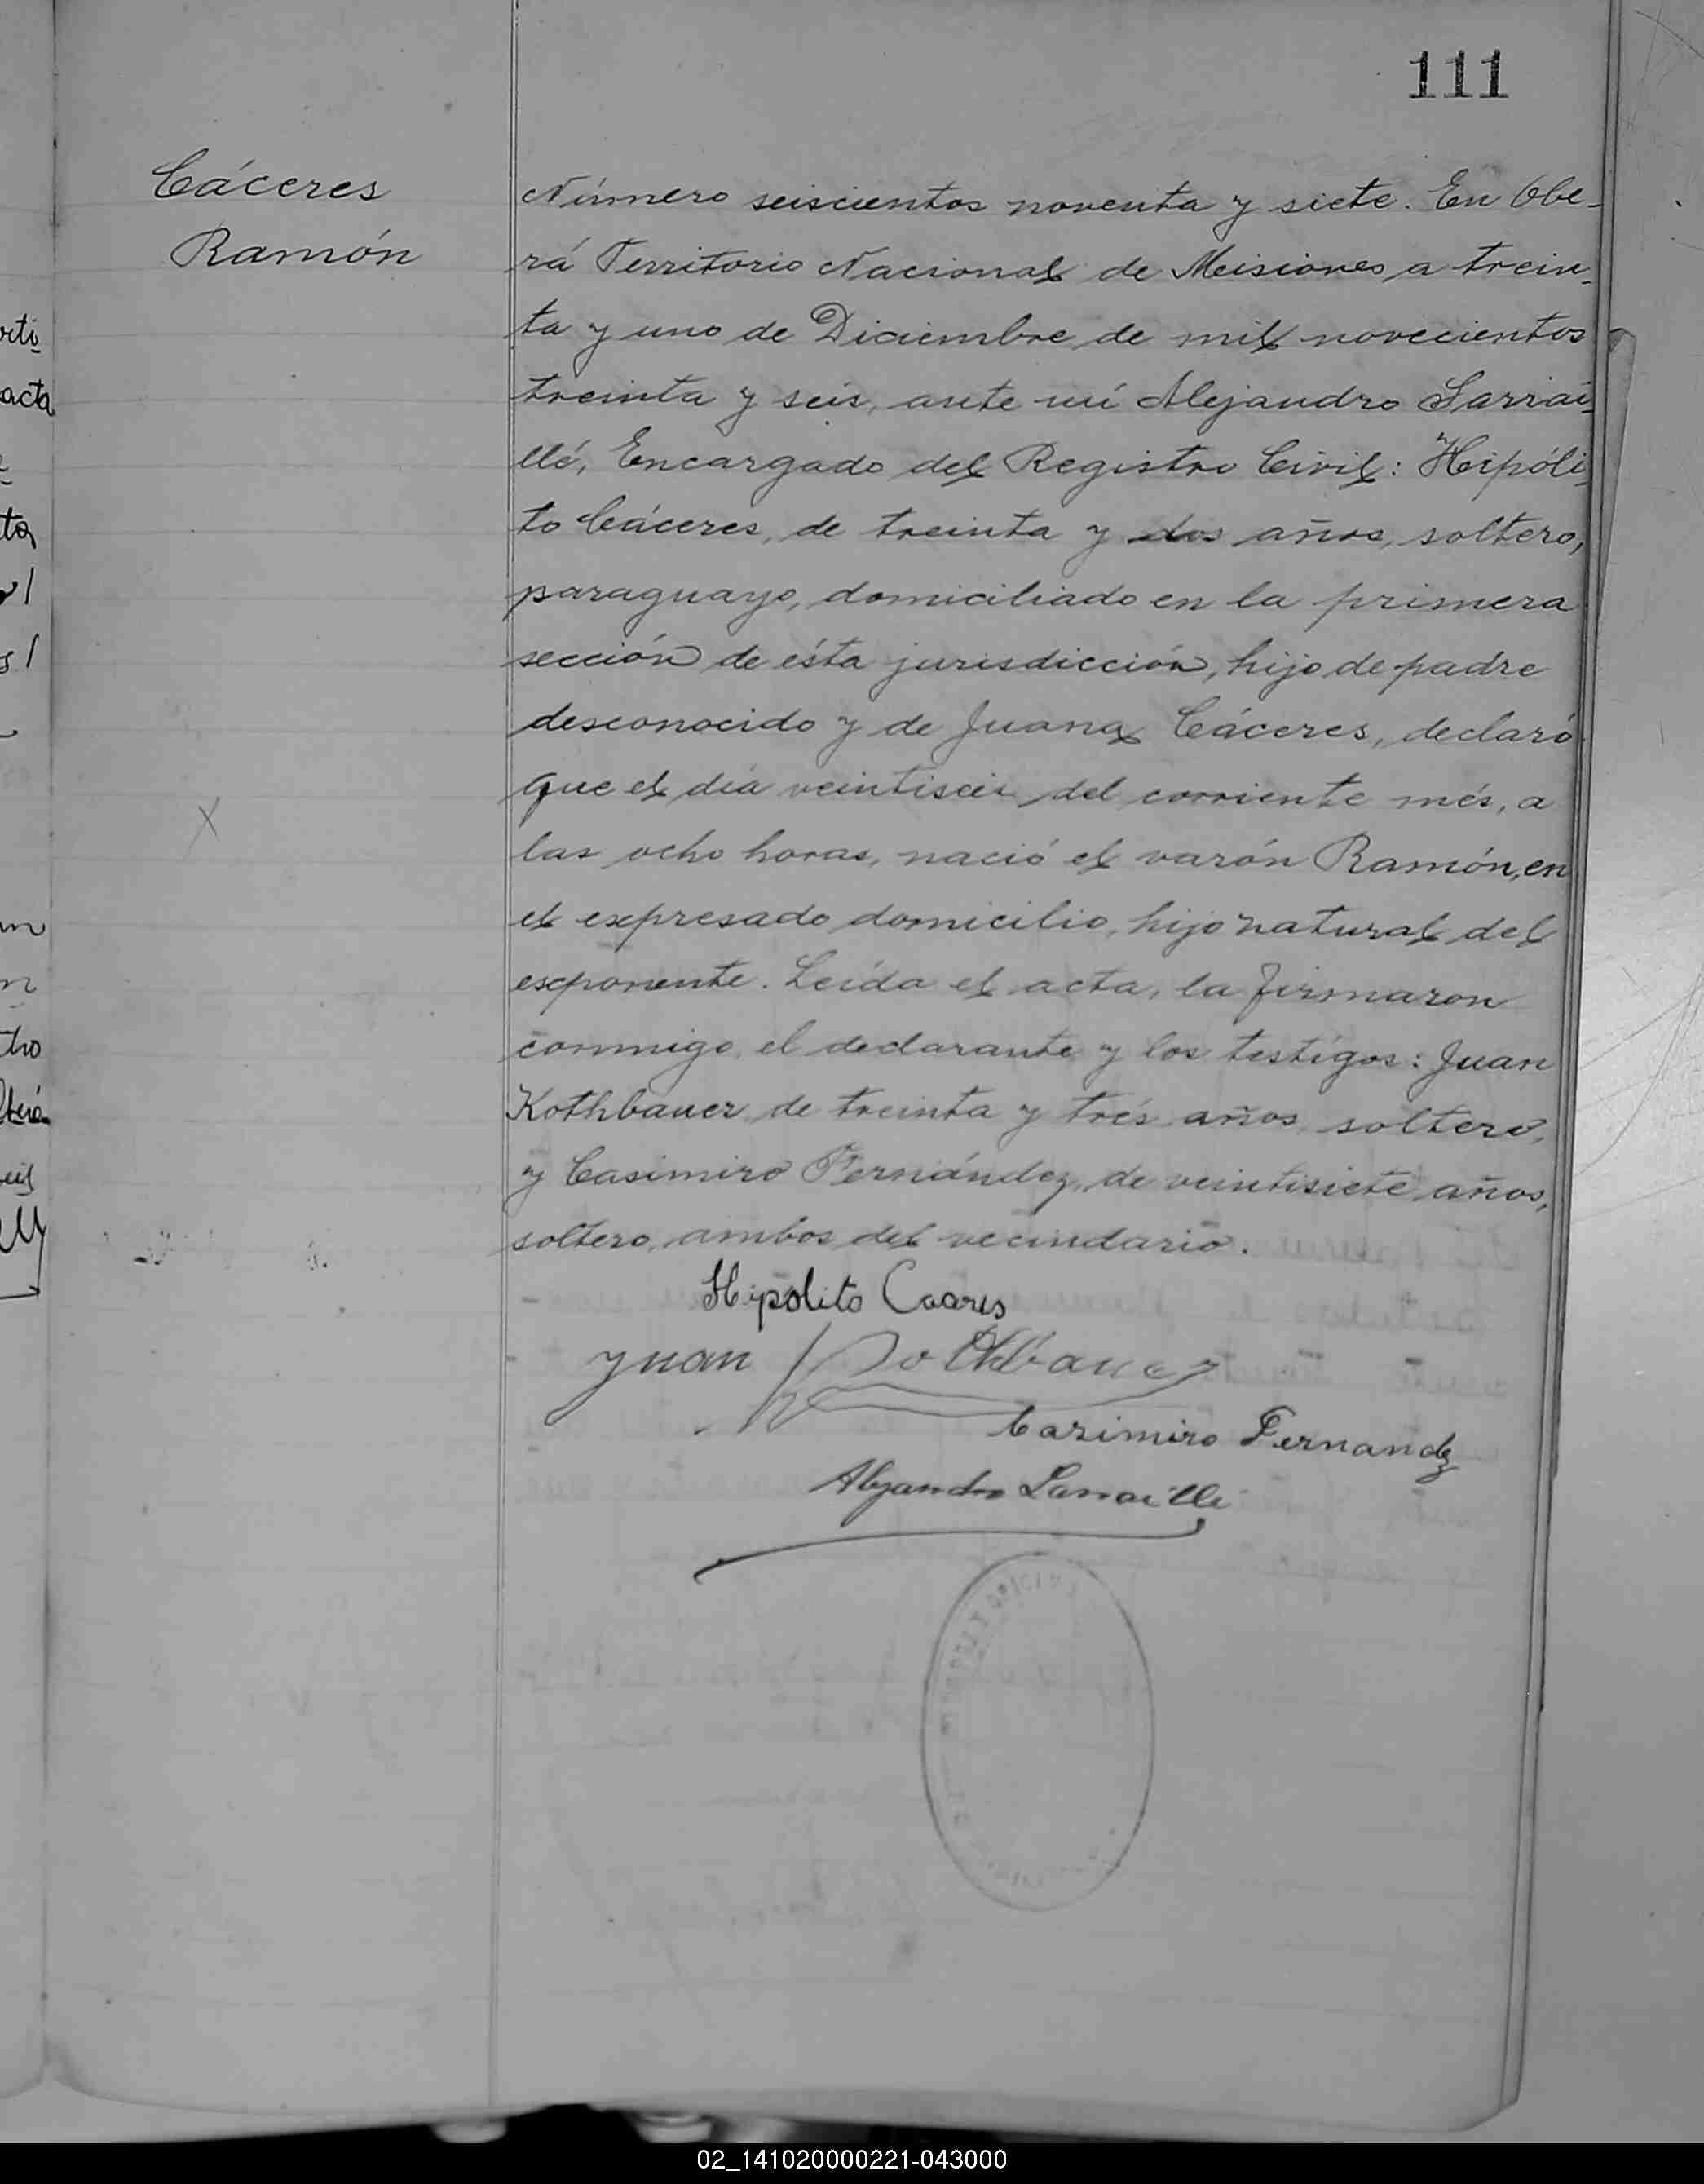 111
Cáceres
Ramón
Número seiscientos noventa y siete. En Obe-
rá Territorio Nacional de Misiones a trein-
ta y uno de Diciembre de mil novecientos
treinta y seis, ante mí Alejandro Sarrai-
llé, Encargado del Registro Civil: Hipóli-
to Cáceres, de treinta y dos años, soltero,
paraguayo, domiciliado en la primera
sección de ésta jurisdicción, hijo de padre
desconocido y de Juana Cáceres, declaró
que el día veintiseis del corriente més, a
las ocho horas, nació el varón Ramón, en
el expresado domicilio, hijo natural del
exponente. Leída el acta, la firmaron
conmigo el declarante y los testigos: Juan
Kothbauer de treinta y trés años soltero,
y Casimiro Fernández, de veintisiete años,
soltero, ambos del vecindario.
Hipolito Caares
Juan Kothbauer
Casimiro Fernandez
Alejandro Sarraillé
orti
acta
ta
tho
eis
02_141020000221-043000